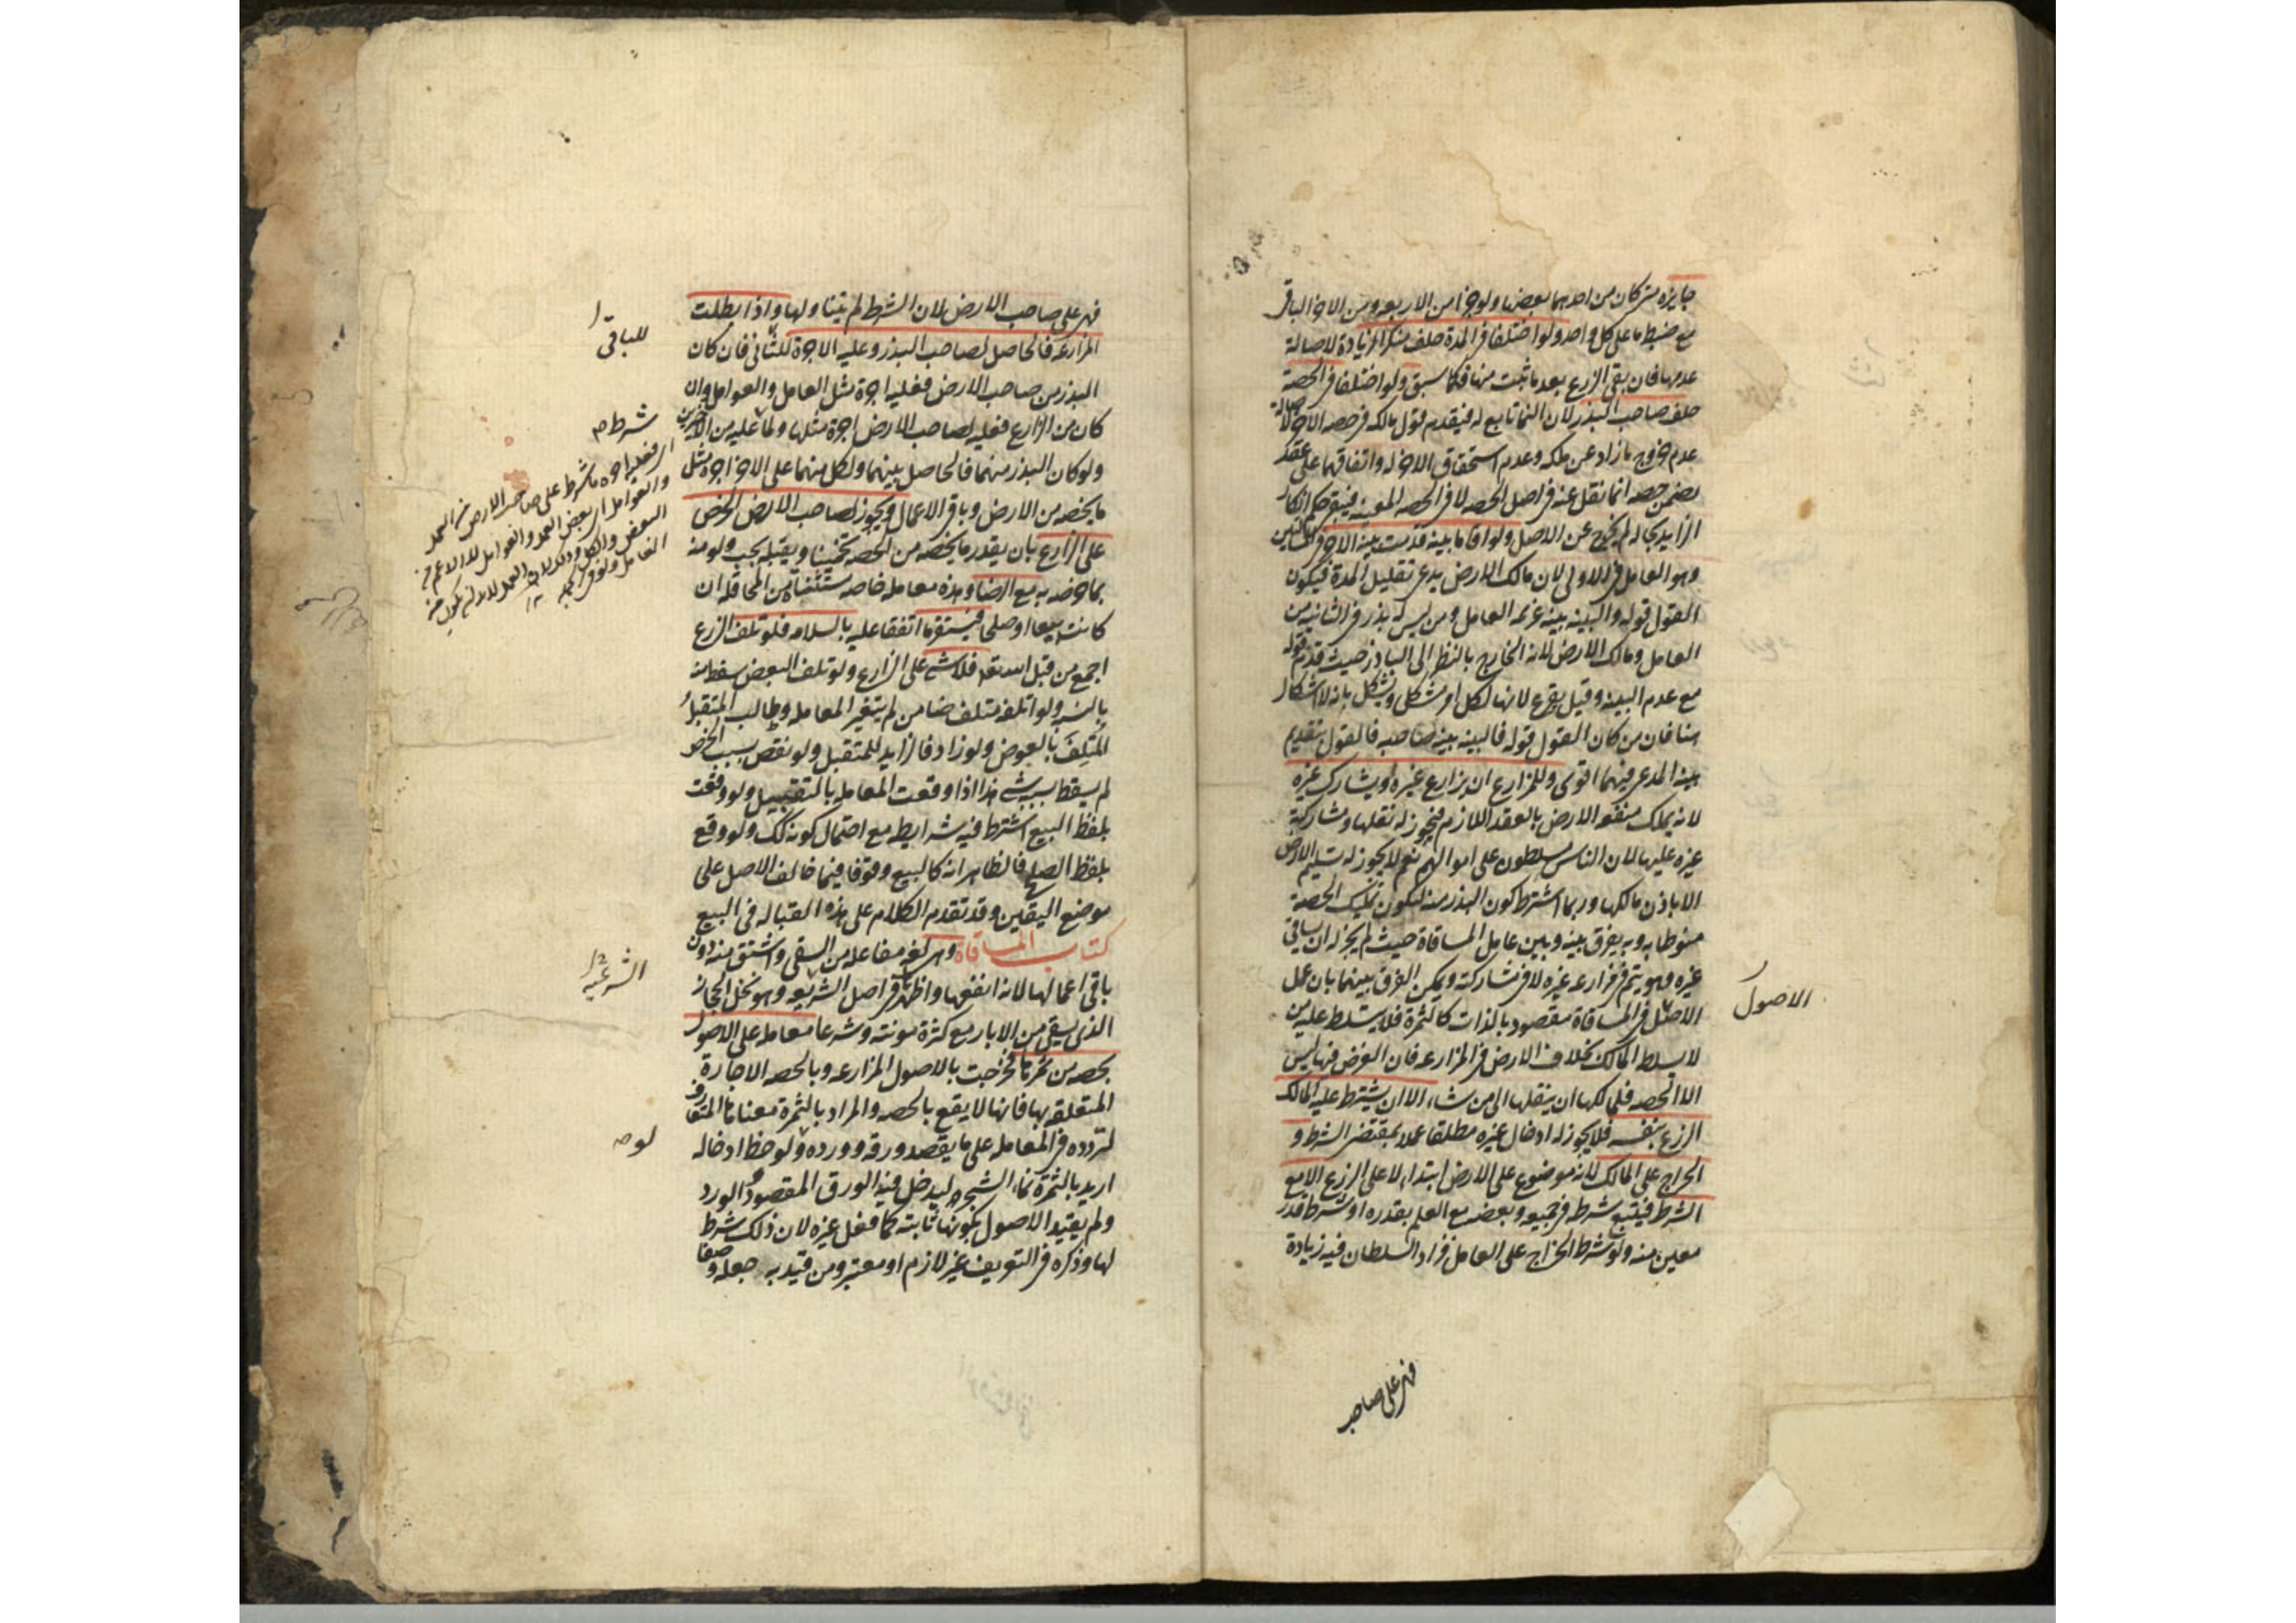 جايزه متى كان من احدهما بعضها ولو جزءا من الاربعه ومن الاخر الباقى
مع ضبط ما على كل واحد ولو اختلفا فى المدة حلف منكر الزيادة لاصالة
عدمها فان بقى الزرع بعد ما ثبت منها فكما سبق ولو اختلفا فى الحصة
حلف صاحب البذر لان النما تابع له فيقدم قول مالكه فى حصه الاخر لاصالة
عدم خروج ما زاد عن ملكه وعدم استحقاق الاخر له واتفاقهما على عقد
يضمن حصه انما نقل عنه فى اصل الحصه لا فى الحصه المعينه فيبقى حكم انكار
الزايد بحاله لم يخرج عن الاصل ولو اقاما بينه قدمت بينه الاخر فى المسئلتين
وهو العامل فى الاولى لان مالك الارض يدعى تقليل المدة فيكون
القول قوله والبينه بينه غريمه العامل ومن ليس له بذر فى الثانيه من
العامل ومالك الارض لانه الخارج بالنظر الى الباذر حيث قدم قوله
مع عدم البينه وقيل يقرع لانها لكل امر مشكل ويشكل بانه لا اشكال
هنا فان من كان القول قوله فالبينه بينه صاحبه فالقول بتقديم
بينه المدعى فيهما اقوى وللمزارع ان يزارع غيره او يشارك غيره
لانه يملك منفعه الارض بالعقد اللازم فيجوز له نقلها ومشاركة
غيره عليها لان الناس مسلطون على اموالهم نعم لا يجوز له تسليم الارض
الا باذن مالكها وربما اشترط كون البذر منه ليكون تمليك الحصة
منوطا به وبه يفرق بينه وبين عامل المساقاة حيث لم يجز له ان يساقى
غيره وهو يتم فى مزارعه غيره لا فى مشاركته ويمكن الفرق بينهما بان عمل
الاصل فى المساقاة مقصود بالذات كالثمرة فلا يتسلط عليه من
لا يسلط المالك بخلاف الارض فى المزارعه فان الغرض فيها ليس
الا الحصه فلمالكها ان ينقلها الى من شاء الا ان يشترط عليه المالك
الزرع بنفسه فلا يجوز له ادخال غيره مطلقا عملا بمقتضى الشرط و
الخراج على المالك لانه موضوع على الارض ابتداء لا على الزرع الا مع
الشرط فيتبع شرطه فى جميعه وبعضه مع العلم بقدره او شرط قدر
معين منه ولو شرط الخراج على العامل فزاد السلطان فيه زيادة
الاصول
فهى على صاحب
فهى على صاحب الارض لان الشرط لم يتناولها واذا بطلت
المزارعه فالحاصل لصاحب البذر وعليه الاجرة للثانى فان كان
البذر من صاحب الارض فعليه اجرة مثل العامل والعوامل وان
كان من الزارع فعليه لصاحب الارض اجرة مثلها ولما عليه من الاخرين
ولو كان البذر منهما فالحاصل بينهما ولكل منهما على الاخر اجرة مثل
ما يخصه من الارض وباقى الاعمال ويجوز لصاحب الارض الخرص
على الزارع بان يقدر ما يخصه من الحصه تخمينا ويقبله بحب ولو منه
بما خرصه به مع الرضا وهذه معامله خاصه مستثناة من المحاقله ان
كانت بيعا او صلحا فيستقر ما اتفقا عليه بالسلامه فلو تلف الزرع
اجمع من قبل الله تعالى فلا شى على الزارع ولو تلف البعض سقط منه
بالنسبه ولو اتلفه متلف ضامن لم يتغير المعامله وطالب المتقبل
المتلف بالعوض ولو زاد فالزايد للمتقبل ولو نقص بسبب الخرص
لم يسقط بسببه شى هذا اذا وقعت المعامله بالتقبيل ولو وقعت
بلفظ البيع اشترط فيه شرايطه مع احتمال كونه كك ولو وقع
بلفظ الصلح فالظاهر انه كالبيع وقوفا فيما خالف الاصل على
موضع اليقين وقد تقدم الكلام على هذه القباله فى البيع
كتاب المساقاة وهى لغه مفاعله من السقى واشتق منه دون
باقى اعمالها لانه انفعها واظهرها فى اصل الشريعه وهو نخل الحجاز
الذى يسقى من الابار مع كثرة مونته وشرعا معامله على الاصول
بحصه من ثمرتها فخرجت بالاصول المزارعه وبالحصه الاجارة
المتعلقه بها فانها لا يقع بالحصه والمراد بالثمرة معناها المتعارف
لتردده فى المعامله على ما يقصد ورقه وورده ولو حظ ادخاله
اريد بالثمرة نماء الشجر ليدخل فيه الورق المقصود والورد
ولم يقيد الاصول بكونها ثابته كما فعل غيره لان ذلك شرط
لها وذكره فى التعريف غير لازم او معتبر ومن قيد به جعله وصفا
للباقى
شرط م
الشرعيه
لوحه